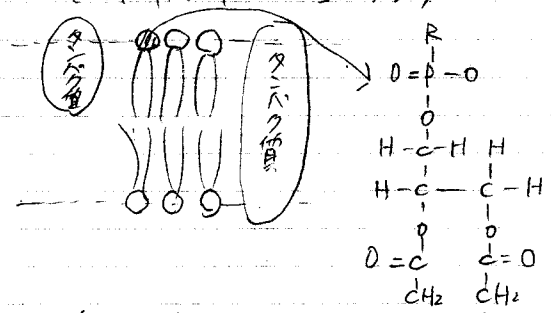 タンパク質
タンパク質
R
O=P-O
O
H-C-H H
H-C-C-H
O O
O=C C=O
CH2 CH2